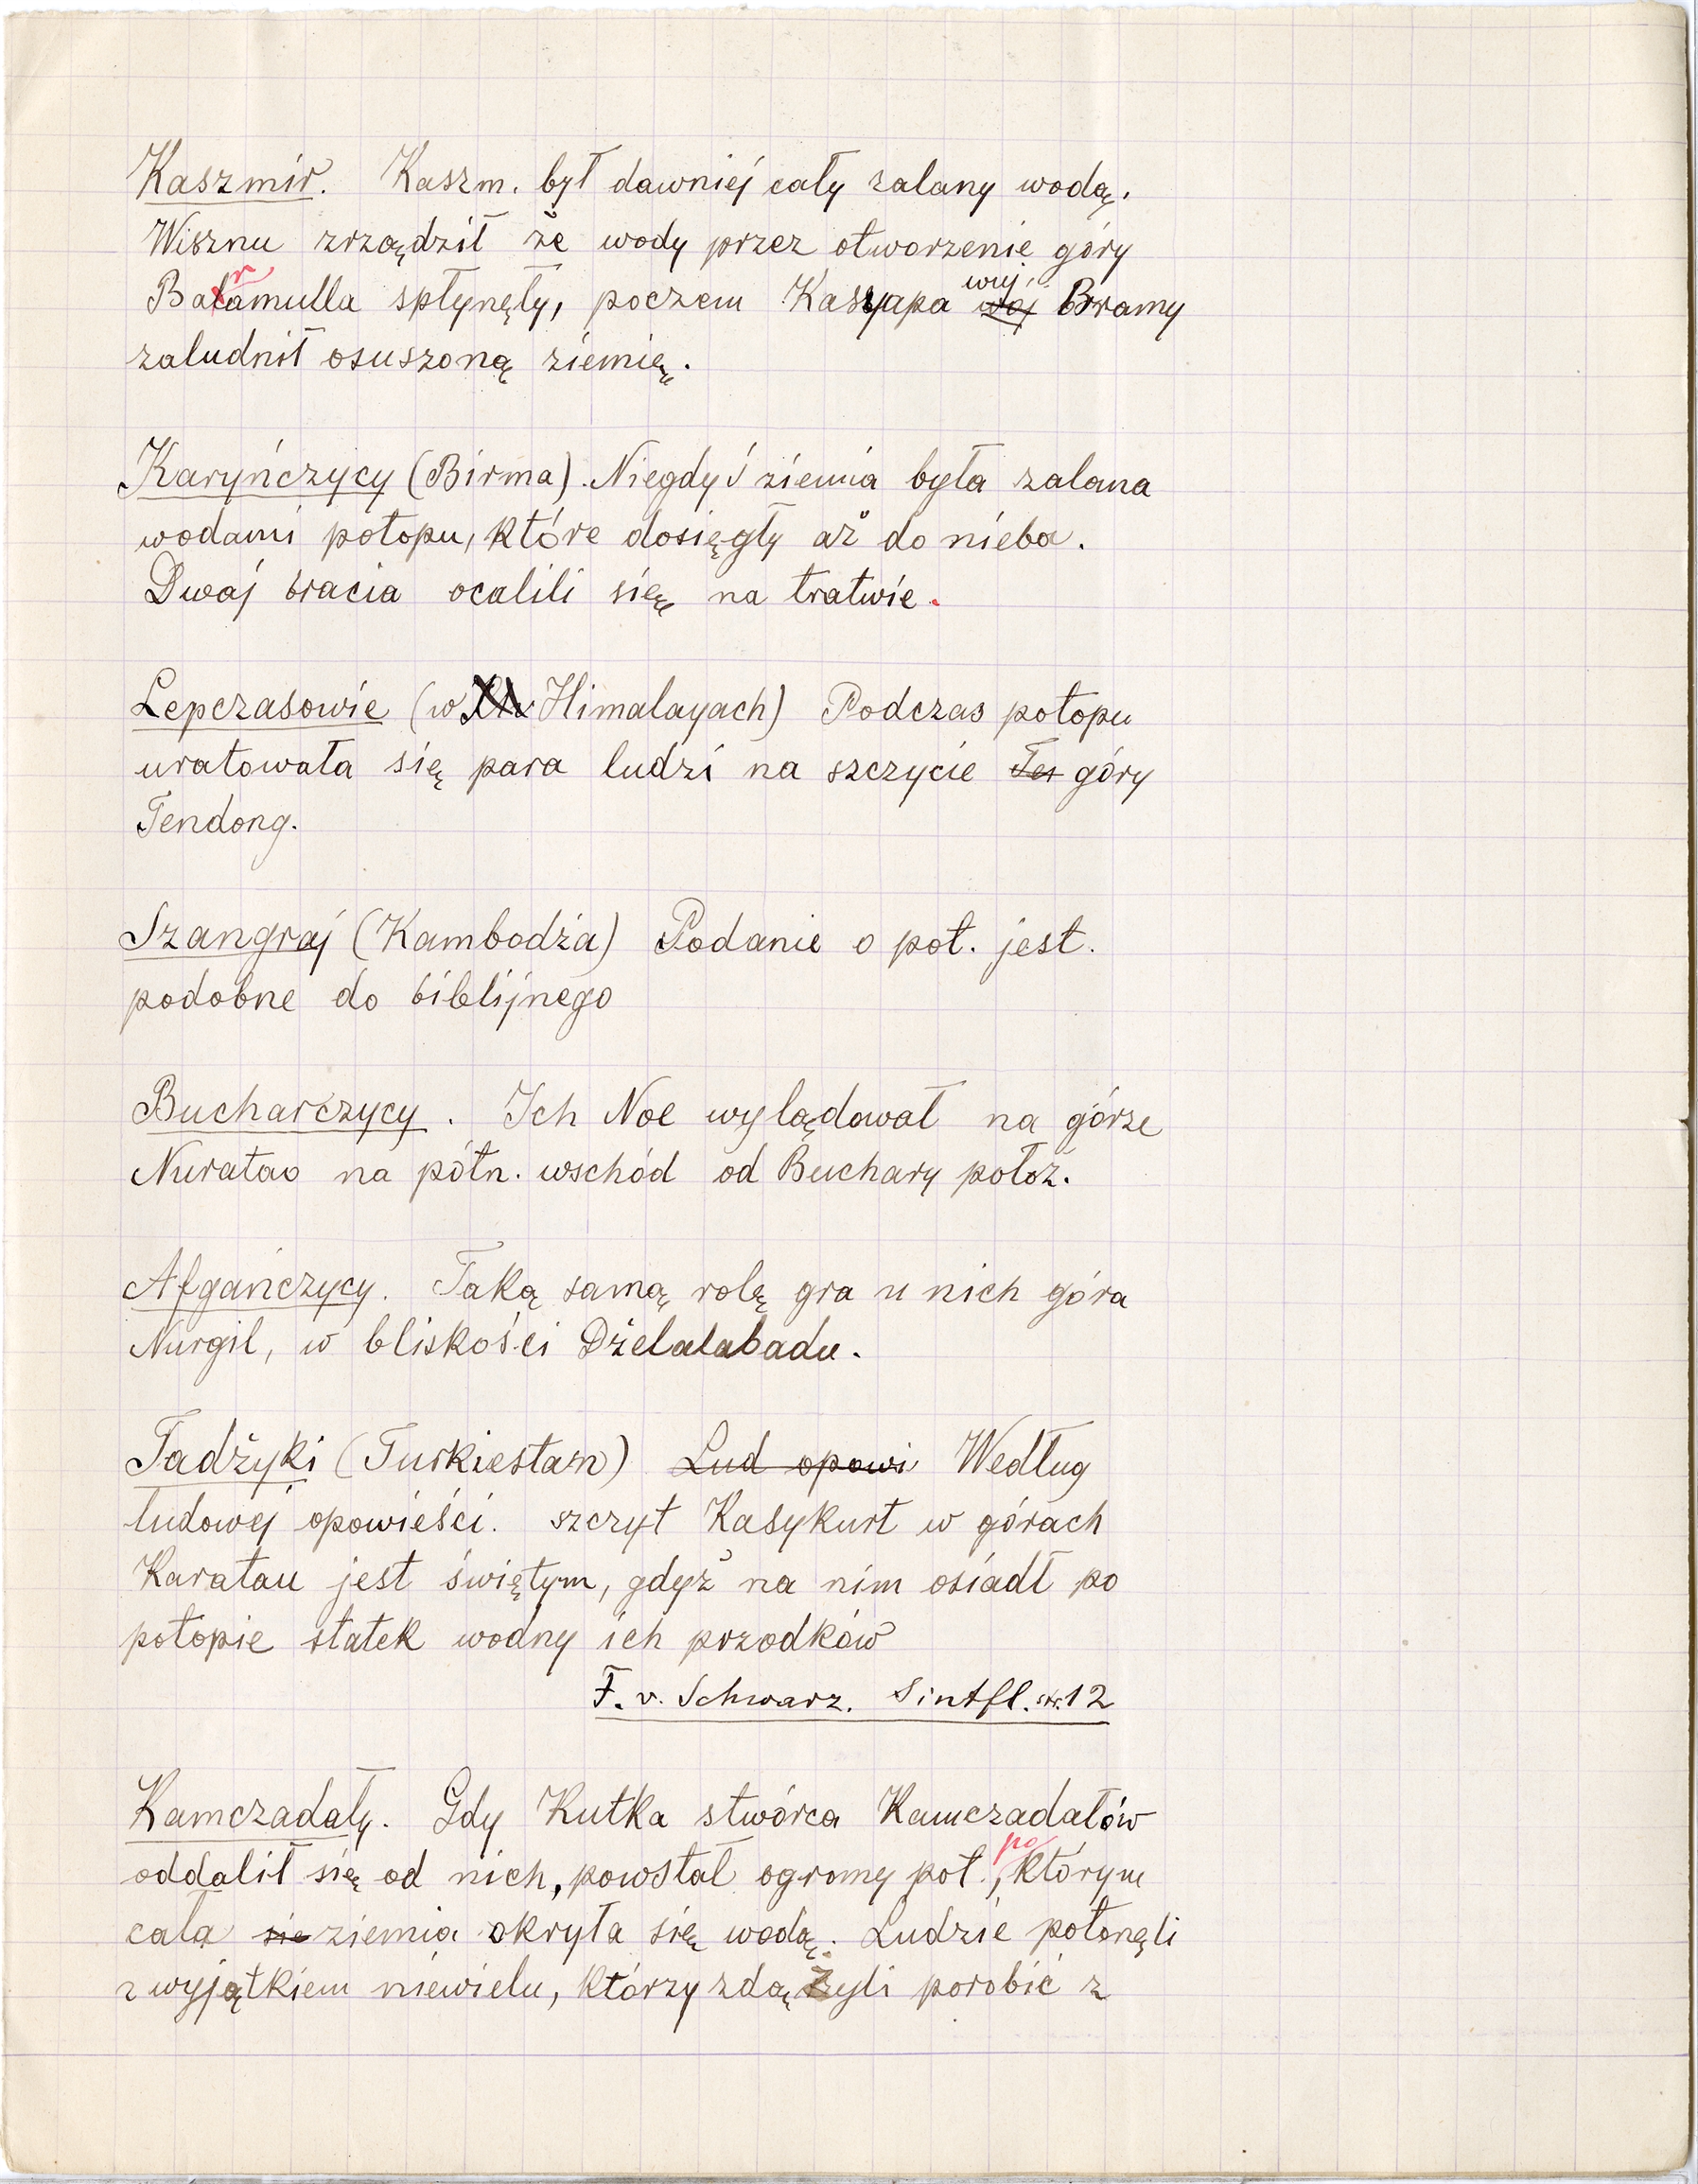 Kaszmir. Kaszm. był dawniej cały zalany wodą.
Wisznu zrządził że wody przez otworzenie góry
Baramulla spłynęły, poczem Kasyapa wuj Bramy
zaludnił osuszoną ziemię.
Karyńczycy (Birma). Niegdyś ziemia była zalana
wodami potopu, które dosięgły aż do nieba.
Dwaj bracia ocalili się na tratwie.
Lepczasowie (w Himalayach) Podczas potopu
uratowała się para ludzi na szczycie góry
Tendong.
Szangraj (Kambodża) Podanie o pot. jest.
podobne do biblijnego
Bucharczycy. Ich Noe wylądował na górze
Nuratao na półn. wschód od Buchary położ.
Afgańczycy. Taką samą rolę gra u nich góra
Nurgil, w bliskości Dżelalabadu.
Tadżyki (Turkiestan) Lud opowi Według
ludowej opowieści. szczyt Kasykurt w górach
Karatau jest świętym, gdyż na nim osiadł po
potopie statek wodny ich przodków
F. v. Schwarz. Sintfl. str. 12
Kamczadały. Gdy Kutka stwórca Kamczadałów
oddalił się od nich, powstał ogromy pot., po którym
cała sie ziemia okryła się wodą. Ludzie potonęli
z wyjątkiem niewielu, którzy zdążyli porobić z